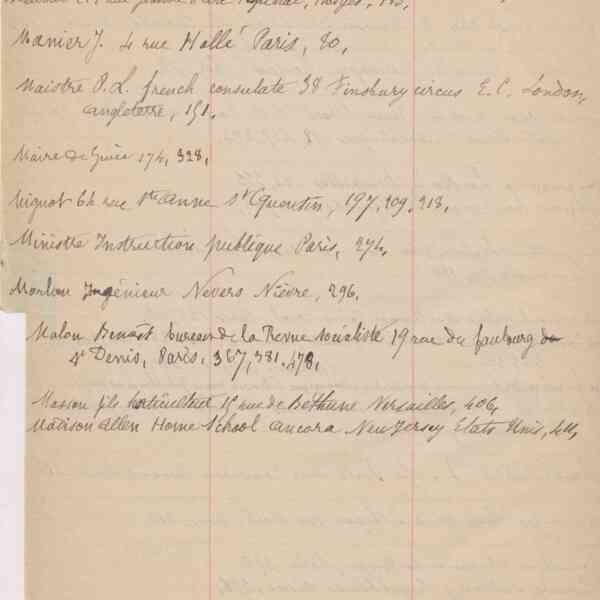 Manier J. 4 rue Hallé Paris, 80,
Maistre P. L. french consulate 38 Finsbury circus E. C. London,
angleterre, 151,
Maire de Guise 174, 328,
Mignot 64 rue Ste Anne St Quentin, 197, 209, 218,
Ministre Instruction publique Paris, 274,
Morlon Ingénieur Nevers Nièvre, 296,
Malon Benoît bureau de la Revue socialiste 19 rue du faubourg
St Denis, Paris, 367, 381, 478,
Masson fils horticulteur rue de Béthune Versailles, 406,
Madison Allen Home School ancora New Jersey Etats Unis,